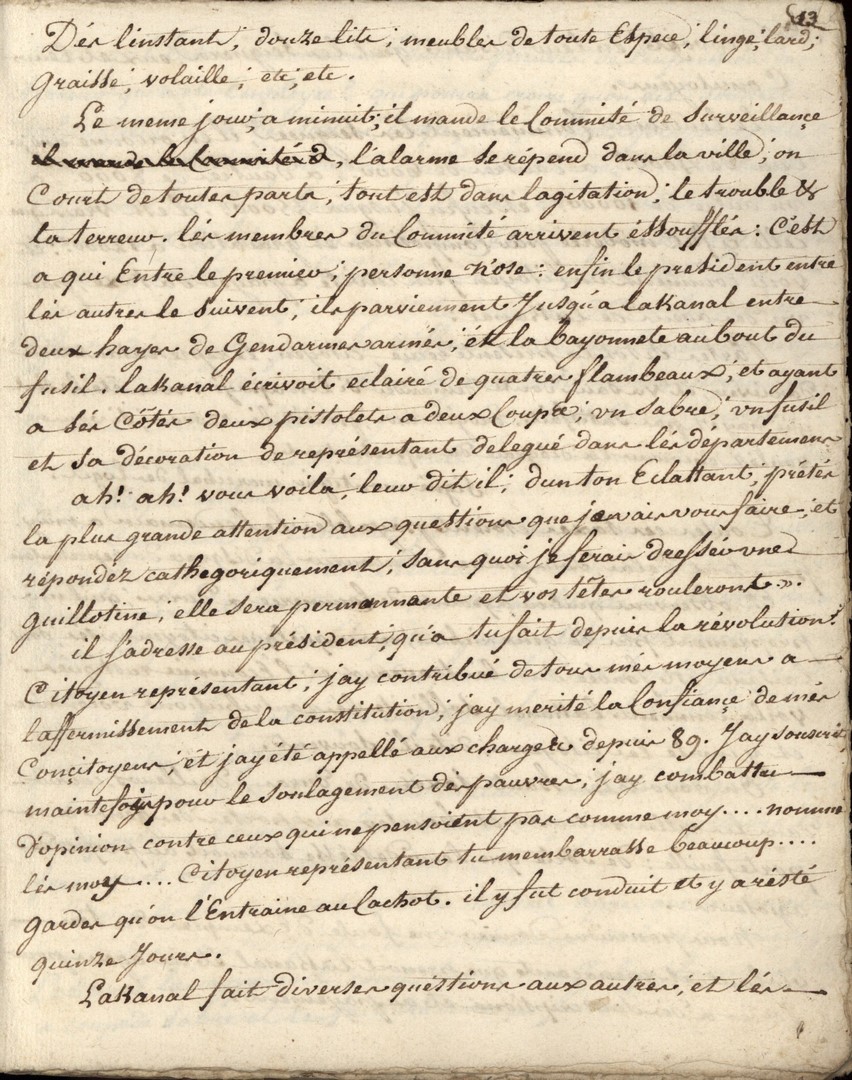 13
Dés l'instant, douze lits, meubles de toute Espece, linge, lard,
graisse, volaille, etc, etc.
Le meme jour, a minuit, il mande le Committé de Surveillançe
il mande le Committé d, l'alarme se répend dans la ville, on
Court de toutes parts, tout est dans lagitation, le trouble &
la terreur. lés membres du Committé arrivent éssoufflés: C'est
a qui Entre le premier, personne n'ose: enfin le president entre
lés autres le suivent, ils parviennent Jusqu'a lakanal entre
deux hayes de Gendarmes armés, ét la bayonnete au bout du
fusil. lakanal écrivoit eclairé de quatres flambeaux, et ayant
a sés Côtés deux pistolets a deux Coups, un sabre, un fusil
et sa décoration de représentant delegué dans lés départemens
ah! ah! vous voila, leur dit il, dun ton Eclattant, prétés
la plus grande attention aux questions que je vais vous faire, et
répondéz cathegoriquement, sans quoi je ferais dresser une
guillotine, elle sera permannante et vos têtes rouleront ».
il s'adresse au président, qu'a tu fait depuis la révolution?
Citoyen représentant, jay contribué de tous més moyens a
laffermissement de la constitution, jay merité la Confiançe de més
Conçitoyens, ét jay été appellé aux charges depuis 89. Jay souscrit,
maintefois pour le soulagement dés pauvres, jay combattu
d'opinion contre ceux qui ne pensoient pas comme moy .... nomme
lés moy .... Citoyen représentant tu membarrasse beaucoup ....
gardes qu'on l'Entraine au Cachot. il y fut conduit et y a résté
quinze Jours.
Lakanal fait diverses quéstions aux autres, et lés